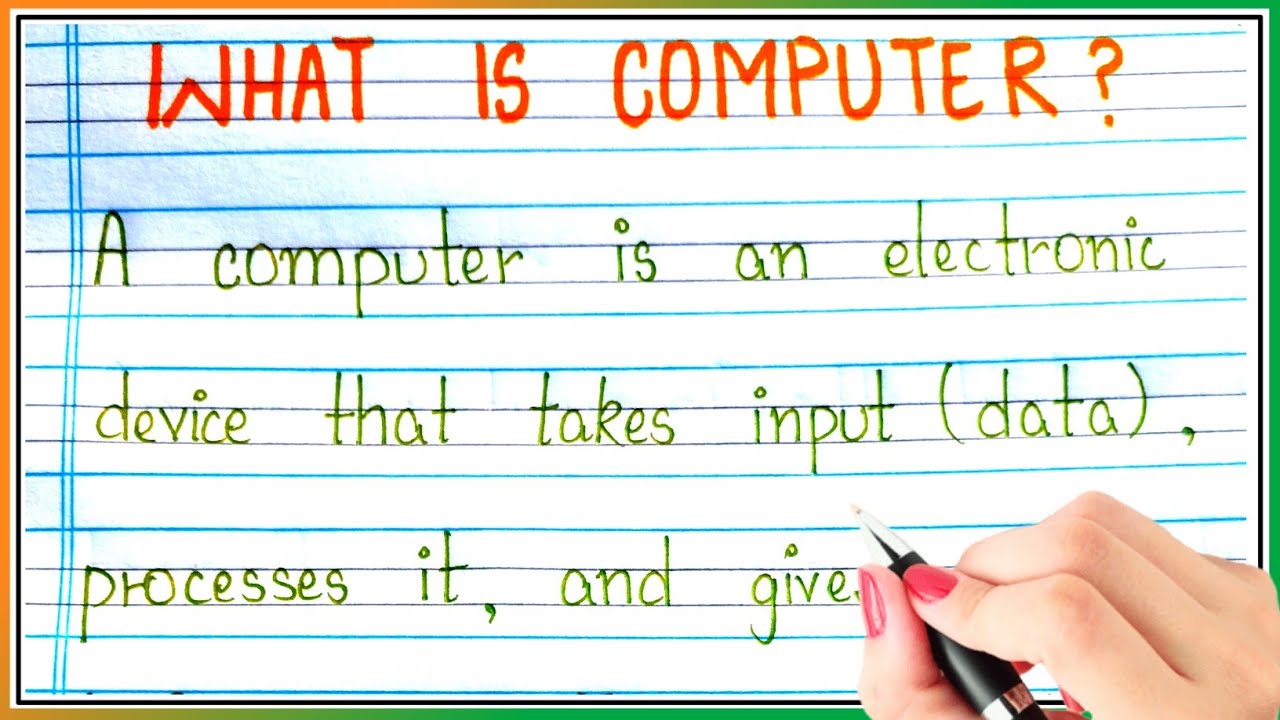 WHAT IS COMPUTER?
A computer is an electronic
device that takes input (data),
processes it, and give